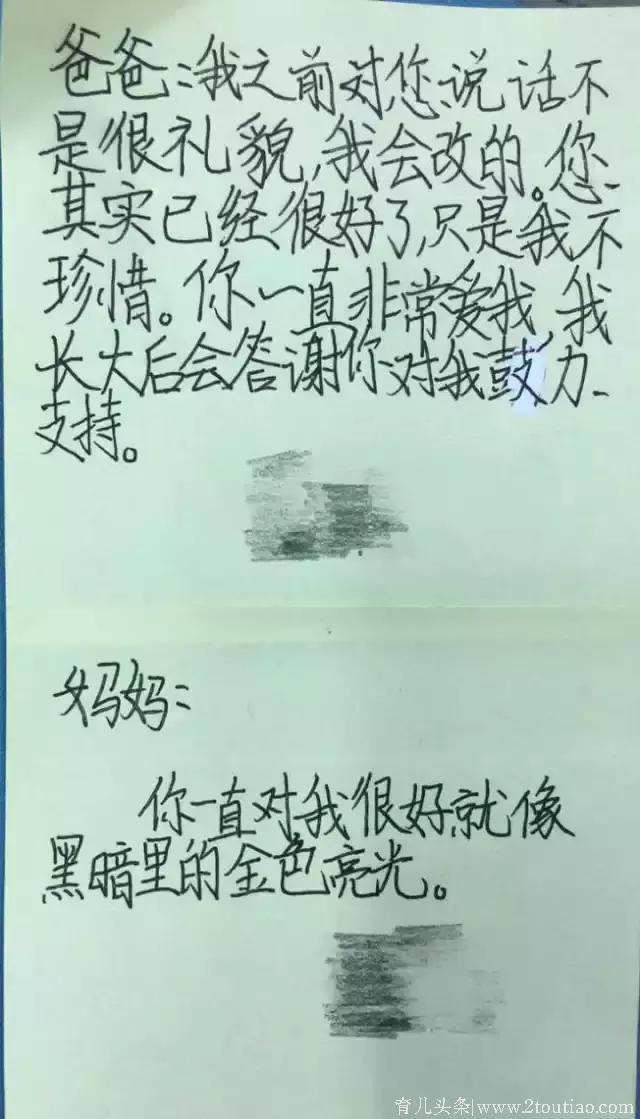 爸爸:我之前对您说话不
是很礼貌,我会改的。您
其实已经很好了,只是我不
珍惜。你一直非常爱我,我
长大后会答谢你对我鼓力
支持。
妈妈:
你一直对我很好,就像
黑暗里的金色亮光。
育儿头条|www.2toutiao.com